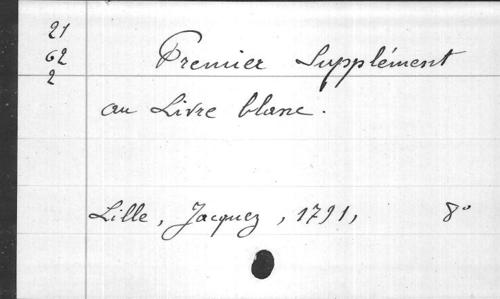 21
62
2
Premier Supplément
au Livre blanc.
Lille, Jacquez, 1791, 8°